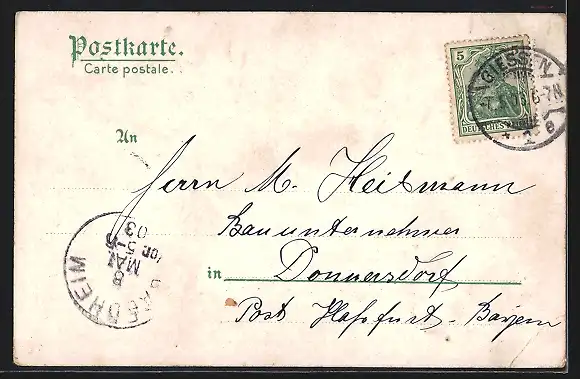 Postkarte.
Carte postale.
5
DEUTSCHES
GIESSEN
6-7N
An
Herrn M. Heilmann
Bauunternehmer
in Donnersdorf
Post Haßfurt - Bayern
8
MAI
5-6
03
HEIM